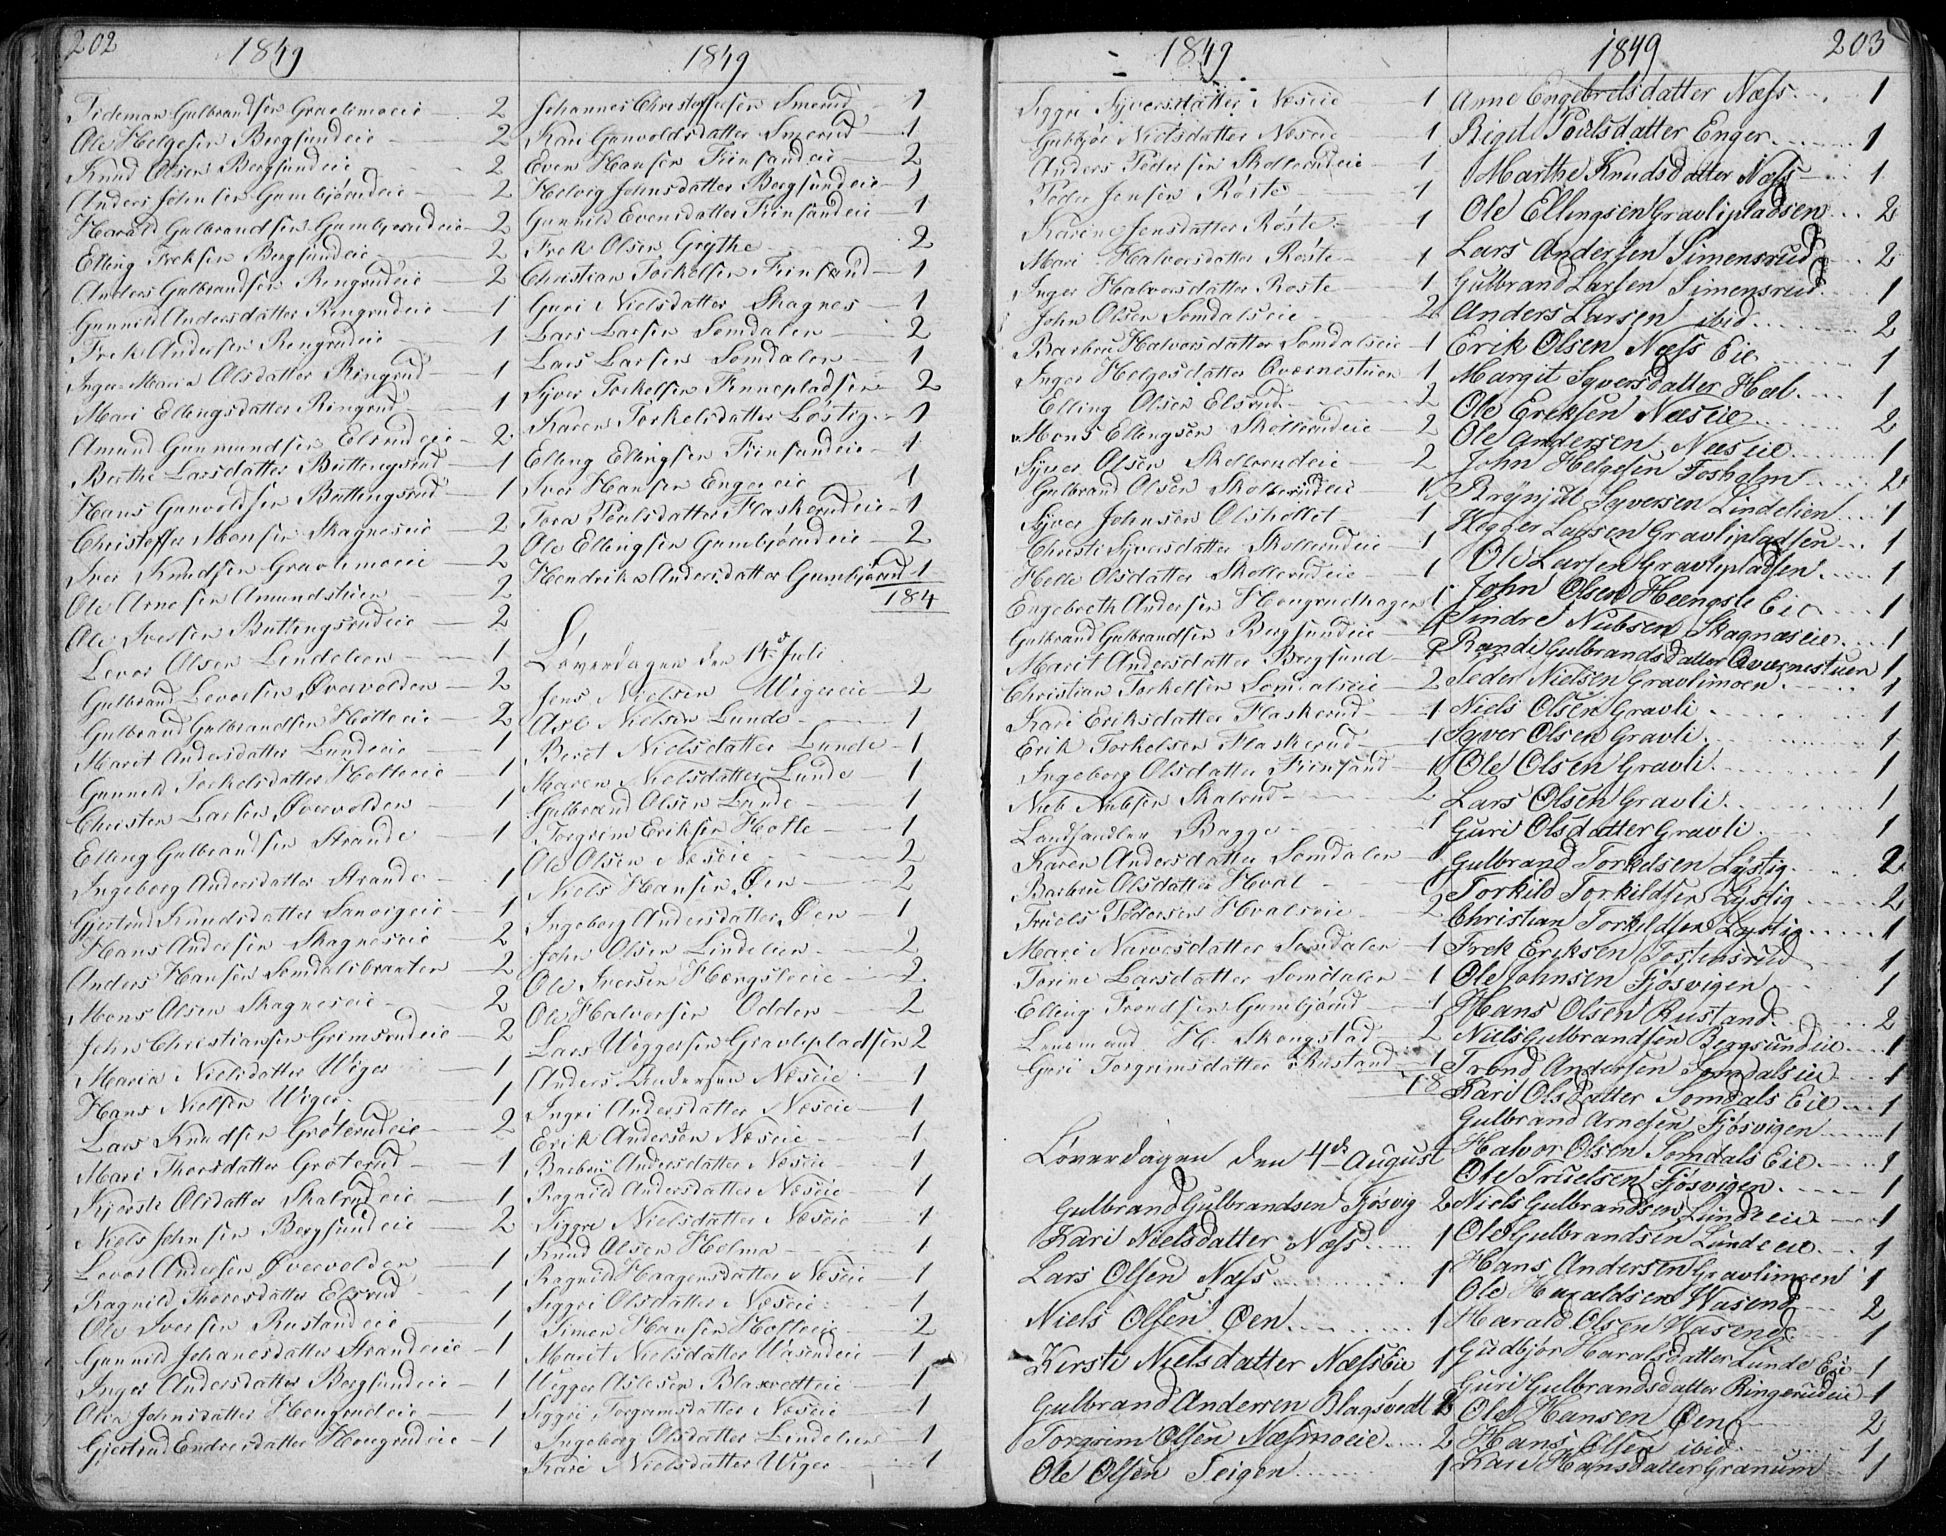 202
1849
Tideman Gulbrandsen Gravlimoeie 2
Ole Helgesen Bergsundeie 2
Knud Olsen Bergsundeie 2
Anders Johnsen Gumbjørudeie 2
Harald Gulbrandsen Gumbjørudeie 2
Elling Treksen Bergsundeie 2
Anders Gulbrandsen Ringrudeie 2
Gunnild Andersdatter Ringrudeie 1
Trek Andersen Ringrudeie 1
Inger Maria Olsdatter Ringrud 1
Mari Ellingsdatter Ringrud 1
Amund Gunmundsen Elsrudeie 2
Berthe Larsdatter Buttingsrud 1
Hans Gunvoldsen Buttingsrud 1
Christoffer Monsen Skagneseie 2
Iver Knudsen Gravlimoeie 2
Ole Arnesen Amundstuen 2
Ole Iversen Buttingsrudeie 2
Levor Olsen Lindelien 1
Gulbrand Levorsen Øvervolden 2
Gulbrand Gulbrandsen Holteeie 2
Marit Andersdatter Lundeeie 1
Gunnild Torkelsdatter Holteeie 1
Christen Larsen Øvervolden 1
Elling Gulbrandsen Strande 1
Ingeborg Andersdatter Strande 1
Gjertrud Knudsdatter Sanvigeie 1
Hans Andersen Skagneseie 2
Anders Hansen Somdalsbraaten 2
Mons Olsen Skagneseie 2
John Christiansen Grimsrudeie 2
Maria Nielsdatter Wiger 1
Hans Nielsen Wiger 1
Lars Knudsen Grøterudeie 2
Mari Thorsdatter Grøterud 1
Kjersti Olsdatter Skalrudeie 1
Niels Johnsen Bergsundeie 2
Levor Andersen Øvervolden 1
Ragnild Thoresdatter Elsrud 1
Ole Iversen Rustandeie 1
Gunnild Johanesdatter Strandeeie 1
Inger Andersdatter Bergsundeie 1
Olia Johnsdatter Hougrudeie 1
Gjertrud Endresdatter Hougrudeie 1
1849
Johannes Christoffersen Smerud 1
Kari Gunvoldsdatter Smerud 1
Even Hansen Finsandeie 2
Helvig Johnsdatter Bergsundeie 1
Gunnild Evensdatter Finsandeie 1
Trek Olsen Grythe 2
Christian Torkelsen Finsand 1
Guri Nielsdatter Skagnes 1
Lars Larsen Somdalen 2
Lars Larsen Somdalen 1
Syver Torkelsen Finnepladsen 2
Karen Torkelsdatter Løstig 1
Elling Ellingsen Finsandeie 1
Iver Hansen Engereie 1
Tora Poulsdatter Flaskerudeie 1
Ole Ellingsen Gumbjørudeie 2
Hendrika Andersdatter Gumbjørud 1
184
Løverdagen den 14de Juli
Jens Nielsen Wigereie 2
Axe Nielsen Lunde 1
Berit Nielsdatter Lunde 1
Maren Nielsdatter Lunde 1
Gulbrand Olsen Lunde 1
Torgrim Eriksen Hofte 1
Ole Olsen Næseie 2
Niels Hansen Øen 2
Ingeborg Andersdatter Øen 1
John Olsen Lindelien 2
Ole Iversen Hængsleeie 2
Ole Halvorsen Odden 2
Lars Wiggersen Gravlipladsen 2
Anders Andersen Næseie 1
Ingri Andersdatter Næseie 1
Erik Andersen Næseie 1
Barbru Andersdatter Næseie 1
Ragnild Andersdatter Næseie 1
Siggri Nielsdatter Næseie 1
Knud Olsen Helma 1
Ragnild Haagensdatter Næseie 1
Siggri Olsdatter Næseie 1
Simen Hansen Hofteeie 2
Marit Nielsdatter Wasendeie 1
Wigger Aslesen Blaxvedteie 1
Siggri Torgrimsdatter Næseie 1
Ingeborg Olsdatter Lindelien 1
Kari Nielsdatter Wiger 1
1849
Siggri Syversdatter Næseie 1
Gubbjør Nielsdatter Næseie 1
Anders Pedersen Skollerudeie 1
Peder Jensen Røste 1
Karine Jensdatter Røste 1
Mari Halvorsdatter Røste 1
Inger Halvorsdatter Røste 1
John Olsen Somdalseie 2
Barbru Halvorsdatter Somdalseie 1
Inger Helgesdatter Qværnestuen 1
Elling Olsen Elsrud 2
Mons Ellingsen Skollerudeie 2
Syver Olsen Skollerudeie 2
Gulbrand Olsen Skollerudeie 1
Syver Johnsen Olshollet 1
Christi Syversdatter Skollerudeie 1
Helle Olsdatter Skollerudeie 1
Engebreth Andersen Hougrudhagen 1
Gulbrand Gulbrandsen Bergsundeie 1
Marit Andersdatter Bergsund 2
Christian Torkelsen Somdalseie 2
Kari Eriksdatter Flaskerud 1
Erik Torkelsen Flaskerud 1
Ingeborg Olsdatter Finsand 1
Niels Nielsen Skalrud 2
Landhandler Bagge 1
Karen Andersdatter Somdalen 1
Barbru Olsdatter Hval
Truels Pedersen Hvalseie 2
Mari Narvesdatter Somdalen 1
Torine Larsdatter Somdalen 1
Elling Trondsen Gumbjørud 1
Lensmand H. Skougstad 2
Guri Torgrimsdatter Rustand 1
78
Løverdagen den 4de August
Gulbrand Gulbrandsen Fjøsvig 2
Kari Nielsdatter Næss 1
Lars Olsen Næss 1
Niels Olsen Øen 1
Kersti Nielsdatter Næsseie 1
Gulbrand Andersen Blagsvedt 2
Torgrim Olsen Næsmoeie 2
Ole Olsen Teigen 1
1849 203
Anne Engebretsdatter Næss 1
Bigit Poulsdatter Enger 1
Marthe Knudsdatter Næss 1
Ole Ellingsen Gravlipladsen 2
Lars Andersen Simensrud 2
Gulbrand Larsen Simensrud 1
Anders Larsen ibid 2
Erik Olsen Næss Eie 1
Margit Syversdatter Hval 1
Ole Eriksen Næseie 2
Ole Andersen Næseie 1
John Helgesen Fosholm 2
Brynjul Syversen Lindelien 1
Hegger Larsen Gravlipladsen 1
Ole Larsen Gravlipladsen 1
John Olsen Heengsle Eie 1
Sindre Nubsen Skagnæseie 1
Randi Gulbrandsdatter Qværnestuen 1
Peder Nielsen Gravlimoen 1
Niels Olsen Gravli 1
Syver Olsen Gravli 1
Ole Olsen Gravli 1
Lars Olsen Gravli 1
Guri Olsdatter Gravli 1
Gulbrand Torkelsen Lystig 2
Torkild Torkildsen Lystig 2
Christian Torkildsen Lystig 1
Trek Eriksen Tostensrud 1
Ole Johnsen Fjøsvigen 1
Hans Olsen Rustand 2
Niels Gulbrandsen Bergsundeie 1
Trond Andersen Somdalseie 1
Kari Olsdatter Somdals Eie 1
Gulbrand Arnesen Fjøsvigen 1
Halvor Olsen Somdals Eie 1
Ole Truelsen Fjøsvigen 1
Niels Gulbrandsen Lundeeie 1
Ole Gulbrandsen Lundeeie 1
Hans Andersen Gravlimoen 1
Ole Haraldsen Wasend 2
Harald Olsen Wasend 1
Gudbjør Haralsdatter Lunde Eie 1
Guri Gulbrandsdatter Ringerudeie 1
Ole Hansen Øen 2
Hans Olsen ibid 1
Kari Hansdatter Granum 1